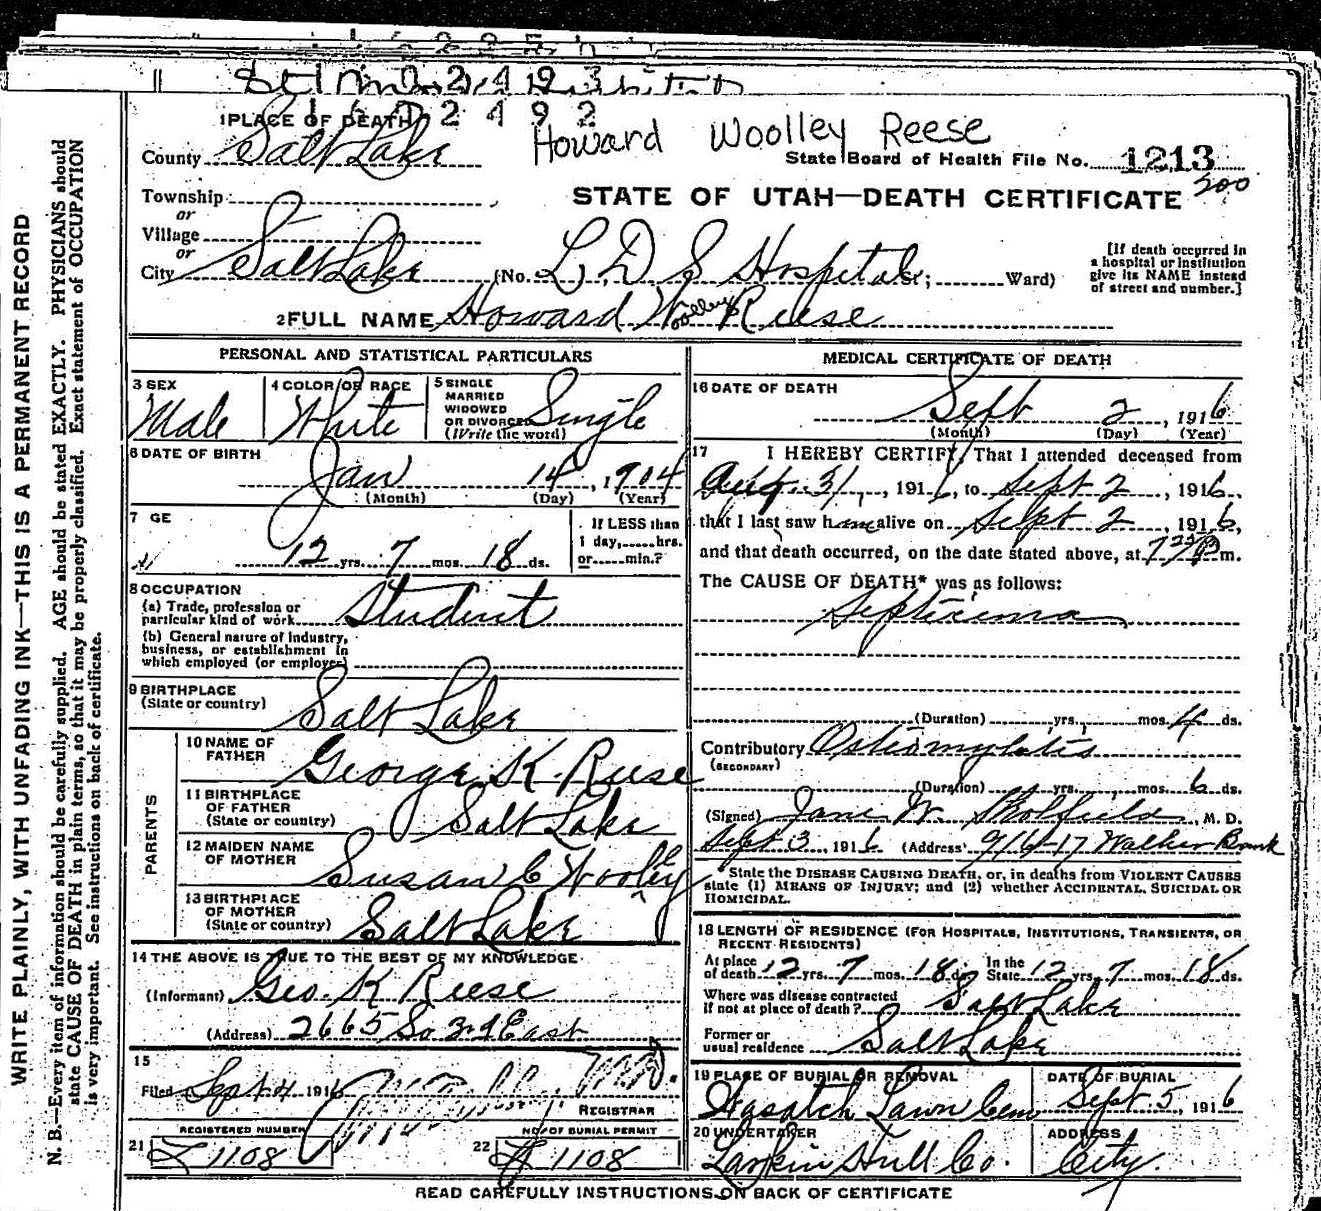 1 PLACE OF DEATH 2 4 9 2
Howard Woolley Reese
County Salt Lake
State Board of Health File No. 1213
200
STATE OF UTAH—DEATH CERTIFICATE
Township
or
Village
or
City Salt Lake (No. L. D. S Hospital St.; Ward)
[If death occurred in
a hospital or institution
give its NAME instead
of street and number.]
2 FULL NAME Howard Woolley Reese
PERSONAL AND STATISTICAL PARTICULARS
3 SEX
Male
4 COLOR OR RACE
White
5 SINGLE
MARRIED
WIDOWED
OR DIVORCED
(Write the word)
Single
6 DATE OF BIRTH
Jan 14, 1904
(Month) (Day) (Year)
7 GE
12 yrs. 7 mos. 18 ds.
If LESS than
1 day, hrs.
or min.?
8 OCCUPATION
(a) Trade, profession or
particular kind of work Student
(b) General nature of industry,
business, or establishment in
which employed (or employer)
9 BIRTHPLACE
(State or country) Salt Lake
PARENTS
10 NAME OF
FATHER George K. Reese
11 BIRTHPLACE
OF FATHER
(State or country) Salt Lake
12 MAIDEN NAME
OF MOTHER Susan C Woolley
13 BIRTHPLACE
OF MOTHER
(State or country) Salt Lake
14 THE ABOVE IS TRUE TO THE BEST OF MY KNOWLEDGE
(Informant) Geo. K Reese
(Address) 2665 So 3rd East
15
Filed Sept 4 1916 M.D.
REGISTRAR
REGISTERED NUMBER
21 L 1108
NO. OF BURIAL PERMIT
22 1108
MEDICAL CERTIFICATE OF DEATH
16 DATE OF DEATH
Sept 2, 1916
(Month) (Day) (Year)
17 I HEREBY CERTIFY, That I attended deceased from
Aug. 31, 1916, to Sept 2, 1916,
that I last saw him alive on Sept 2, 1916,
and that death occurred, on the date stated above, at 7 25 P m.
The CAUSE OF DEATH* was as follows:
Septicema
(Duration) yrs. mos. 4 ds.
Contributory Osteomyletis
(SECONDARY)
(Duration) yrs. mos. 6 ds.
(Signed) Jane W. Skolfield, M. D.
Sept 3, 1916 (Address) 916-17 Walker Bank
*State the DISEASE CAUSING DEATH, or, in deaths from VIOLENT CAUSES
state (1) MEANS OF INJURY; and (2) whether ACCIDENTAL, SUICIDAL OR
HOMICIDAL.
18 LENGTH OF RESIDENCE (FOR HOSPITALS, INSTITUTIONS, TRANSIENTS, OR
RECENT RESIDENTS)
At place
of death 12 yrs. 7 mos. 18 ds. In the
State 12 yrs. 7 mos. 18 ds.
Where was disease contracted
if not at place of death? Salt Lake
Former or
usual residence Salt Lake
19 PLACE OF BURIAL OR REMOVAL
Wasatch Lawn Cem
DATE OF BURIAL
Sept 5, 1916
20 UNDERTAKER
Larkin Hull Co.
ADDRESS
City.
READ CAREFULLY INSTRUCTIONS ON BACK OF CERTIFICATE
WRITE PLAINLY, WITH UNFADING INK—THIS IS A PERMANENT RECORD
N. B.—Every item of information should be carefully supplied. AGE should be stated EXACTLY. PHYSICIANS should
state CAUSE OF DEATH in plain terms, so that it may be properly classified. Exact statement of OCCUPATION
is very important. See instructions on back of certificate.